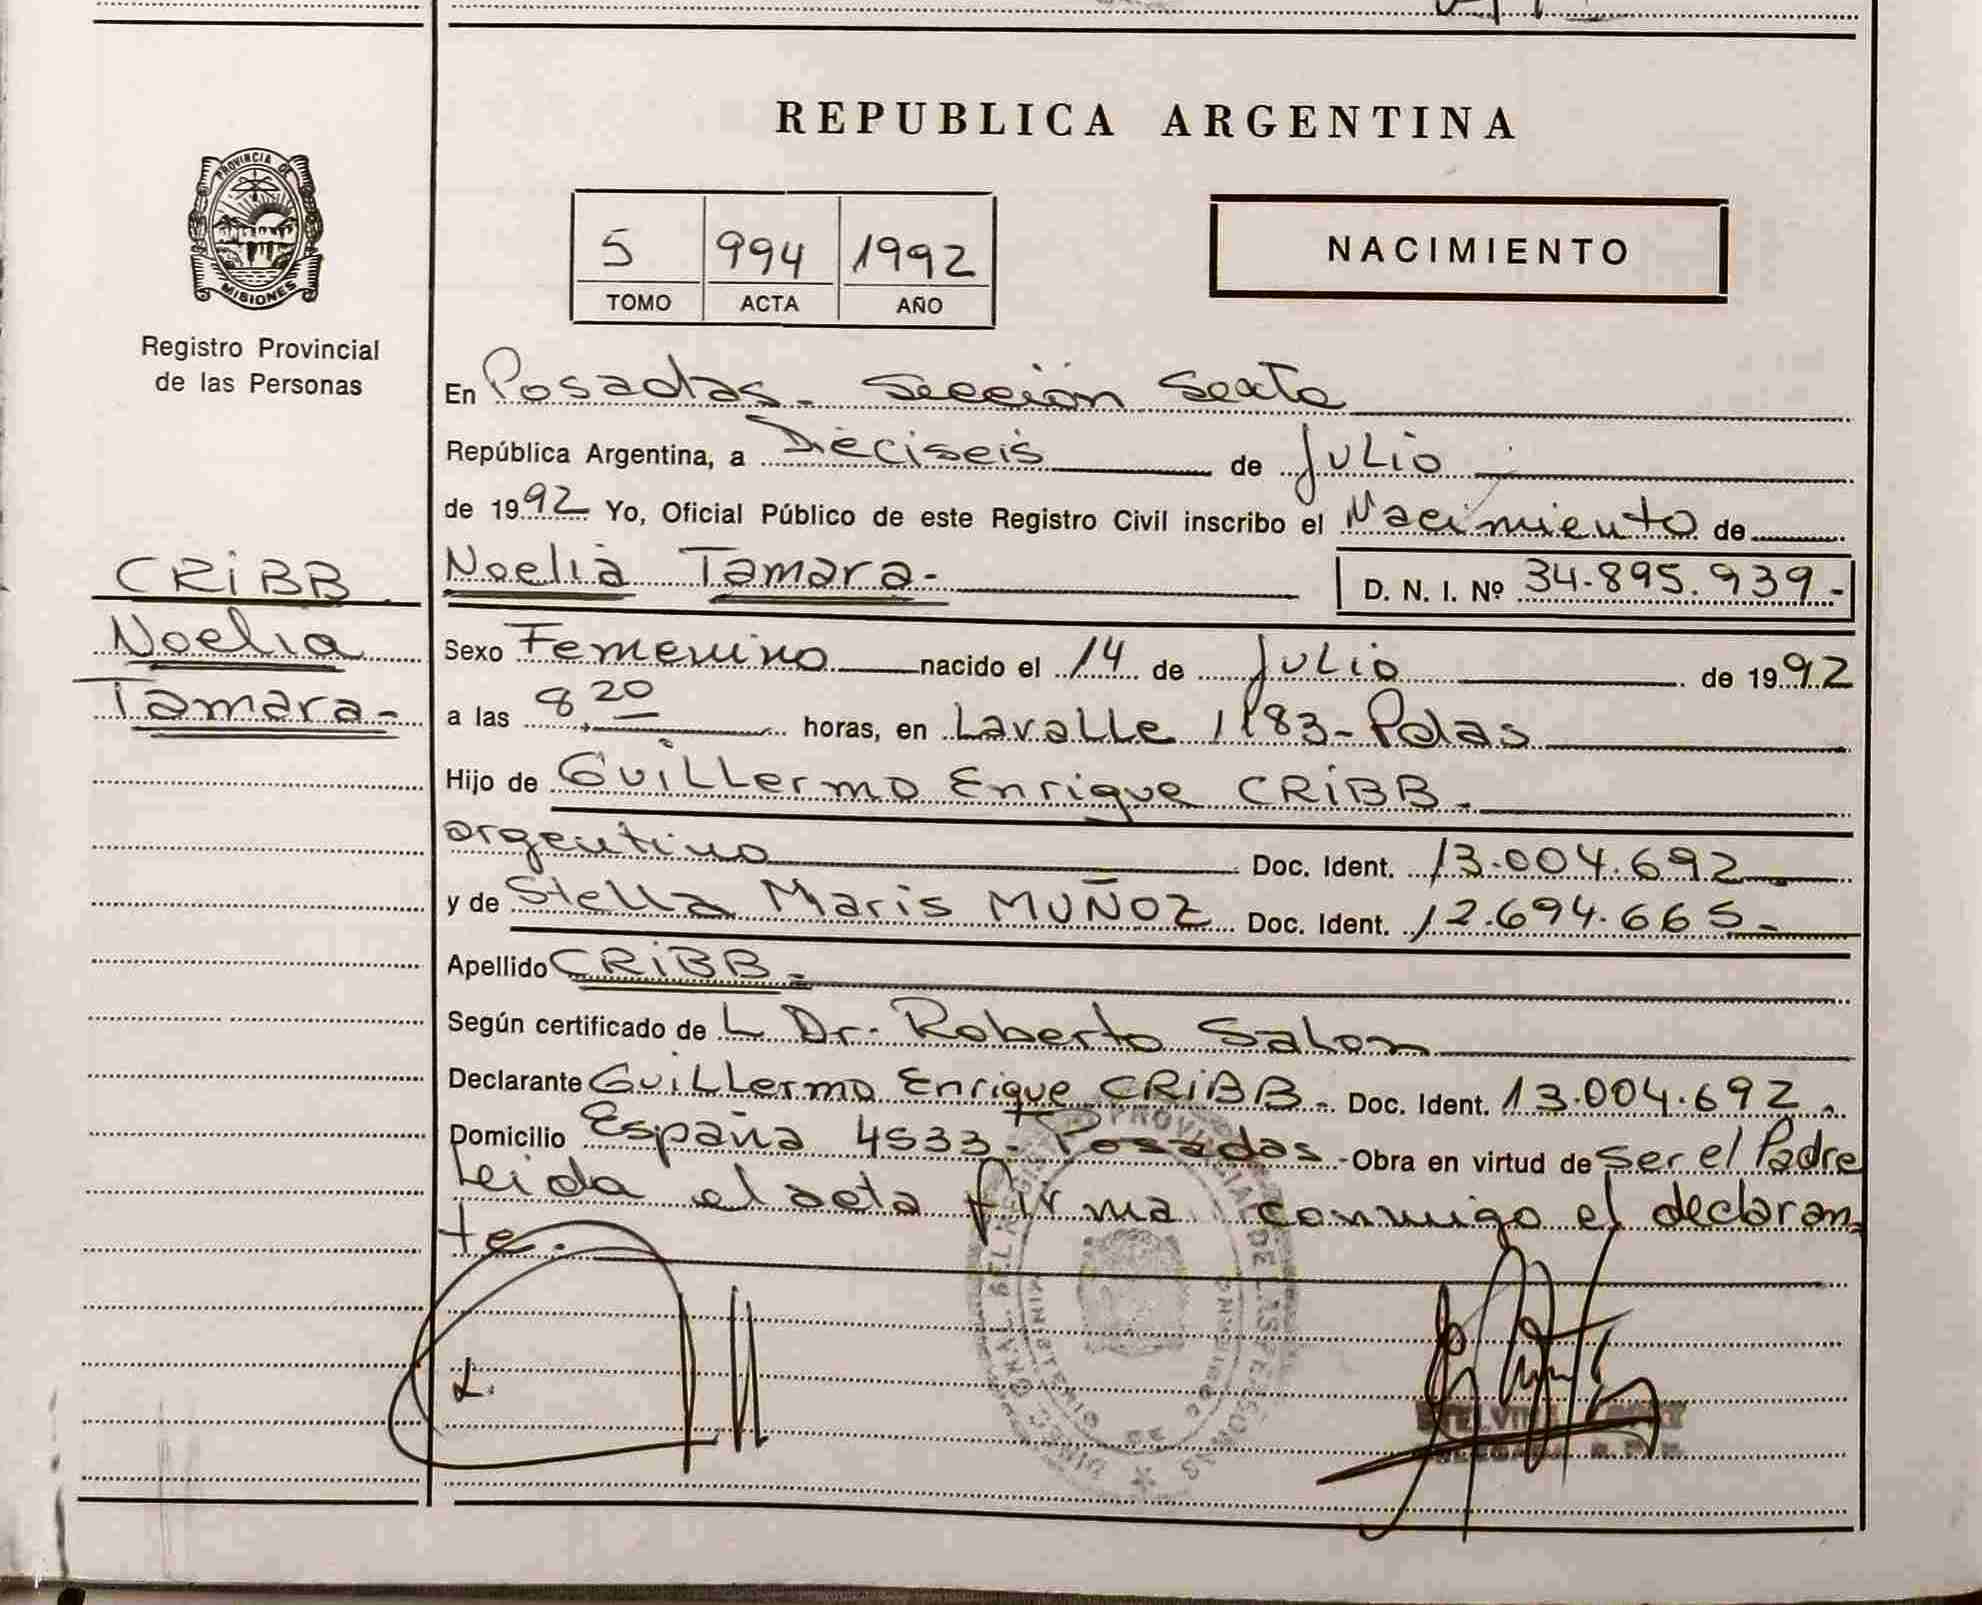 REPUBLICA ARGENTINA
PROVINCIA DE
MISIONES
Registro Provincial
de las Personas
5 994 1992
TOMO ACTA AÑO
NACIMIENTO
En Posadas - Sección Sexta
República Argentina, a Dieciseis de Julio
de 1992 Yo, Oficial Público de este Registro Civil inscribo el Nacimiento de
CRIBB
Noelia
Tamara-
Noelia Tamara- D. N. I. Nº 34.895.939-
Sexo Femenino nacido el 14 de Julio de 1992
a las 8,20 horas, en Lavalle 1183- Pdas
Hijo de Guillermo Enrique CRIBB-
argentino Doc. Ident. 13.004.692
y de Stella Maris MUÑOZ Doc. Ident. 12.694.665-
Apellido CRIBB-
Según certificado de L Dr. Roberto
Declarante Guillermo Enrique CRIBB- Doc. Ident. 13.004.692.
Domicilio España 4533- Posadas - Obra en virtud de ser el Padre
Leida el acta firma conmigo el declaran
te.